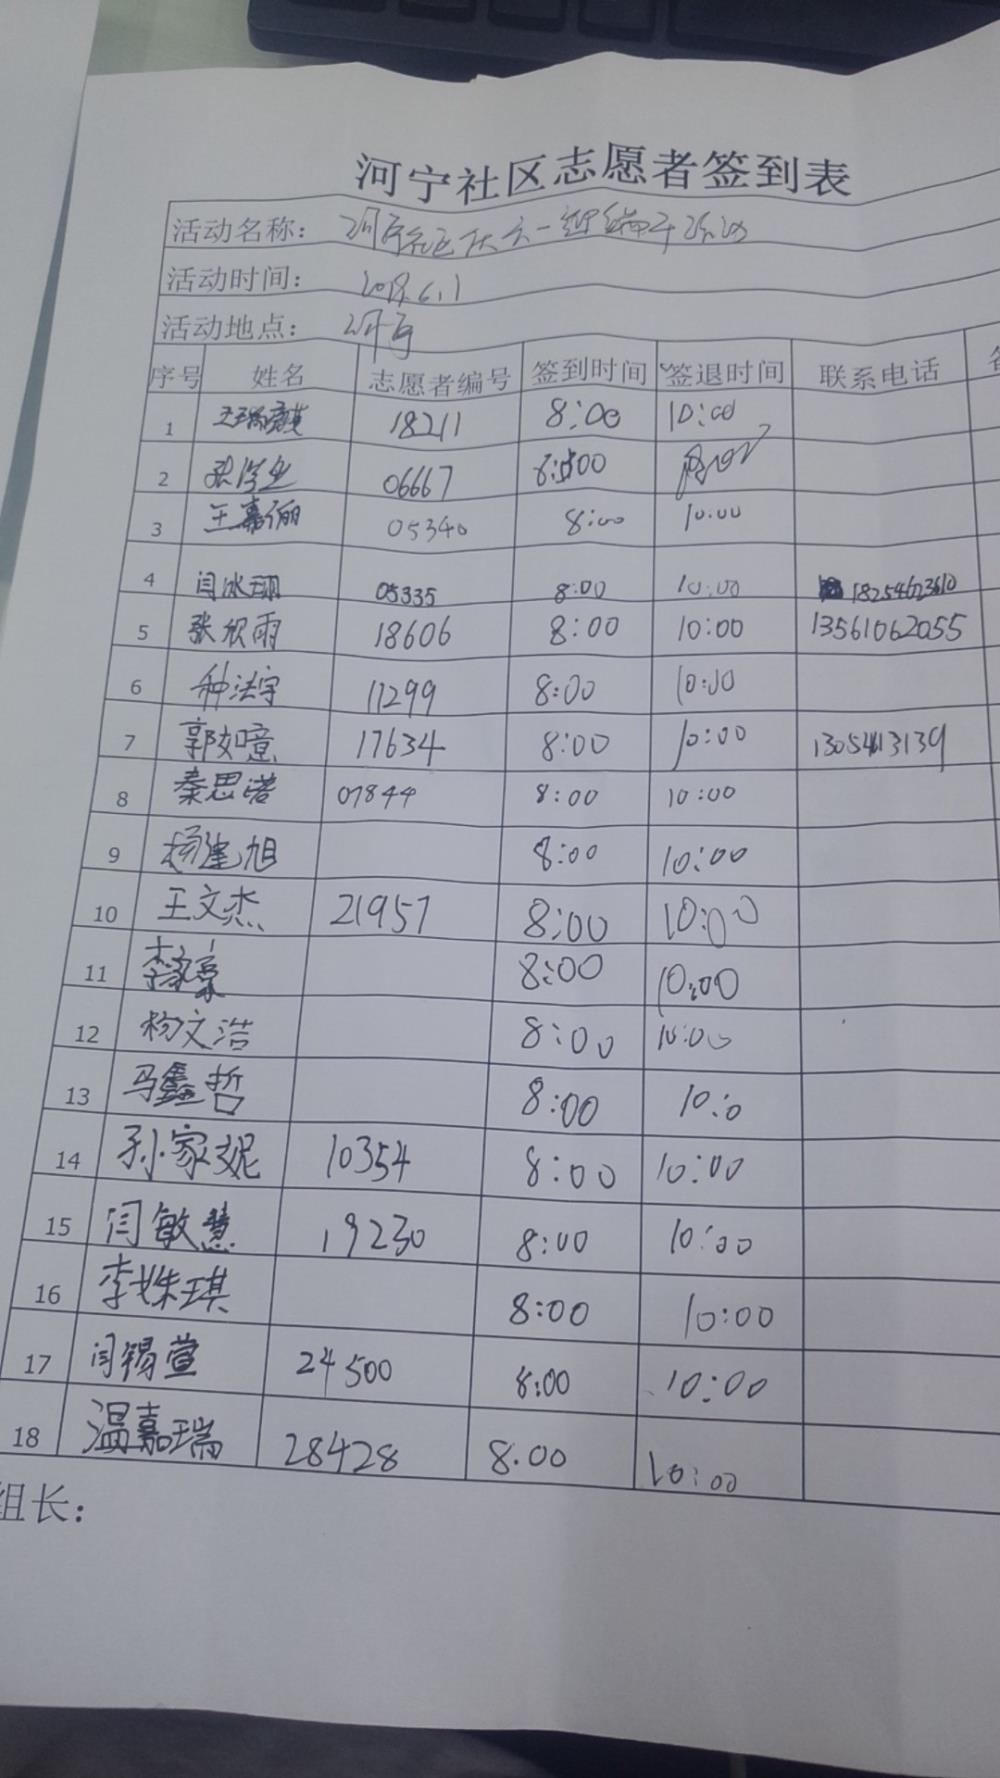 河宁社区志愿者签到表
活动名称: 河宁社区庆六一迎端午活动
活动时间: 2019.6.1
活动地点: 河宁
序号 姓名 志愿者编号 签到时间 签退时间 联系电话
1 18211 8:00 10:00
2 06667 8:00
3 王嘉俪 05340 8:00 10:00
4 闫冰珊 05335 8:00 10:00 18254623610
5 张欣雨 18606 8:00 10:00 13561062055
6 种法宇 11299 8:00 10:00
7 郭如意 17634 8:00 10:00
8 秦思诺 07844 8:00 10:00
9 杨建旭 8:00 10:00
10 王文杰 21957 8:00 10:00
11 李家豪 8:00 10:00
12 杨文浩 8:00 10:00
13 马鑫哲 8:00 10:0
14 孙家妮 10354 8:00 10:00
15 闫敏慧 19230 8:00 10:00
16 李姝琪 8:00 10:00
17 闫锡萱 24500 8:00 10:00
18 温嘉瑞 28428 8.00 10:00
组长: